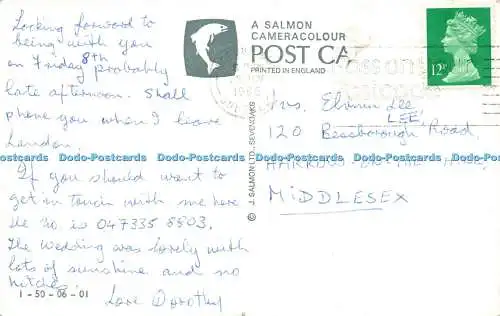 Looking forward to
being with you
on Friday 8th probably
late afternoon. Shall
phone you when I leave
London.
If you should want to
get in touch with me here
the no is 047335 8803.
The wedding was lovely with
lots of sunshine and no
hitches.
Love Dorothy
1-50-06-01
A SALMON
CAMERACOLOUR
POST CA
PRINTED IN ENGLAND
© J. SALMON LTD., SEVENOAKS
1986
12P
Mrs. Lee
LEE,
120 Bessborough Road,
HARROW-ON-THE-HILL,
MIDDLESEX
Dodo-Postcards Dodo-Postcards Dodo-Postcards Dodo-Postcards Dodo-Postcards